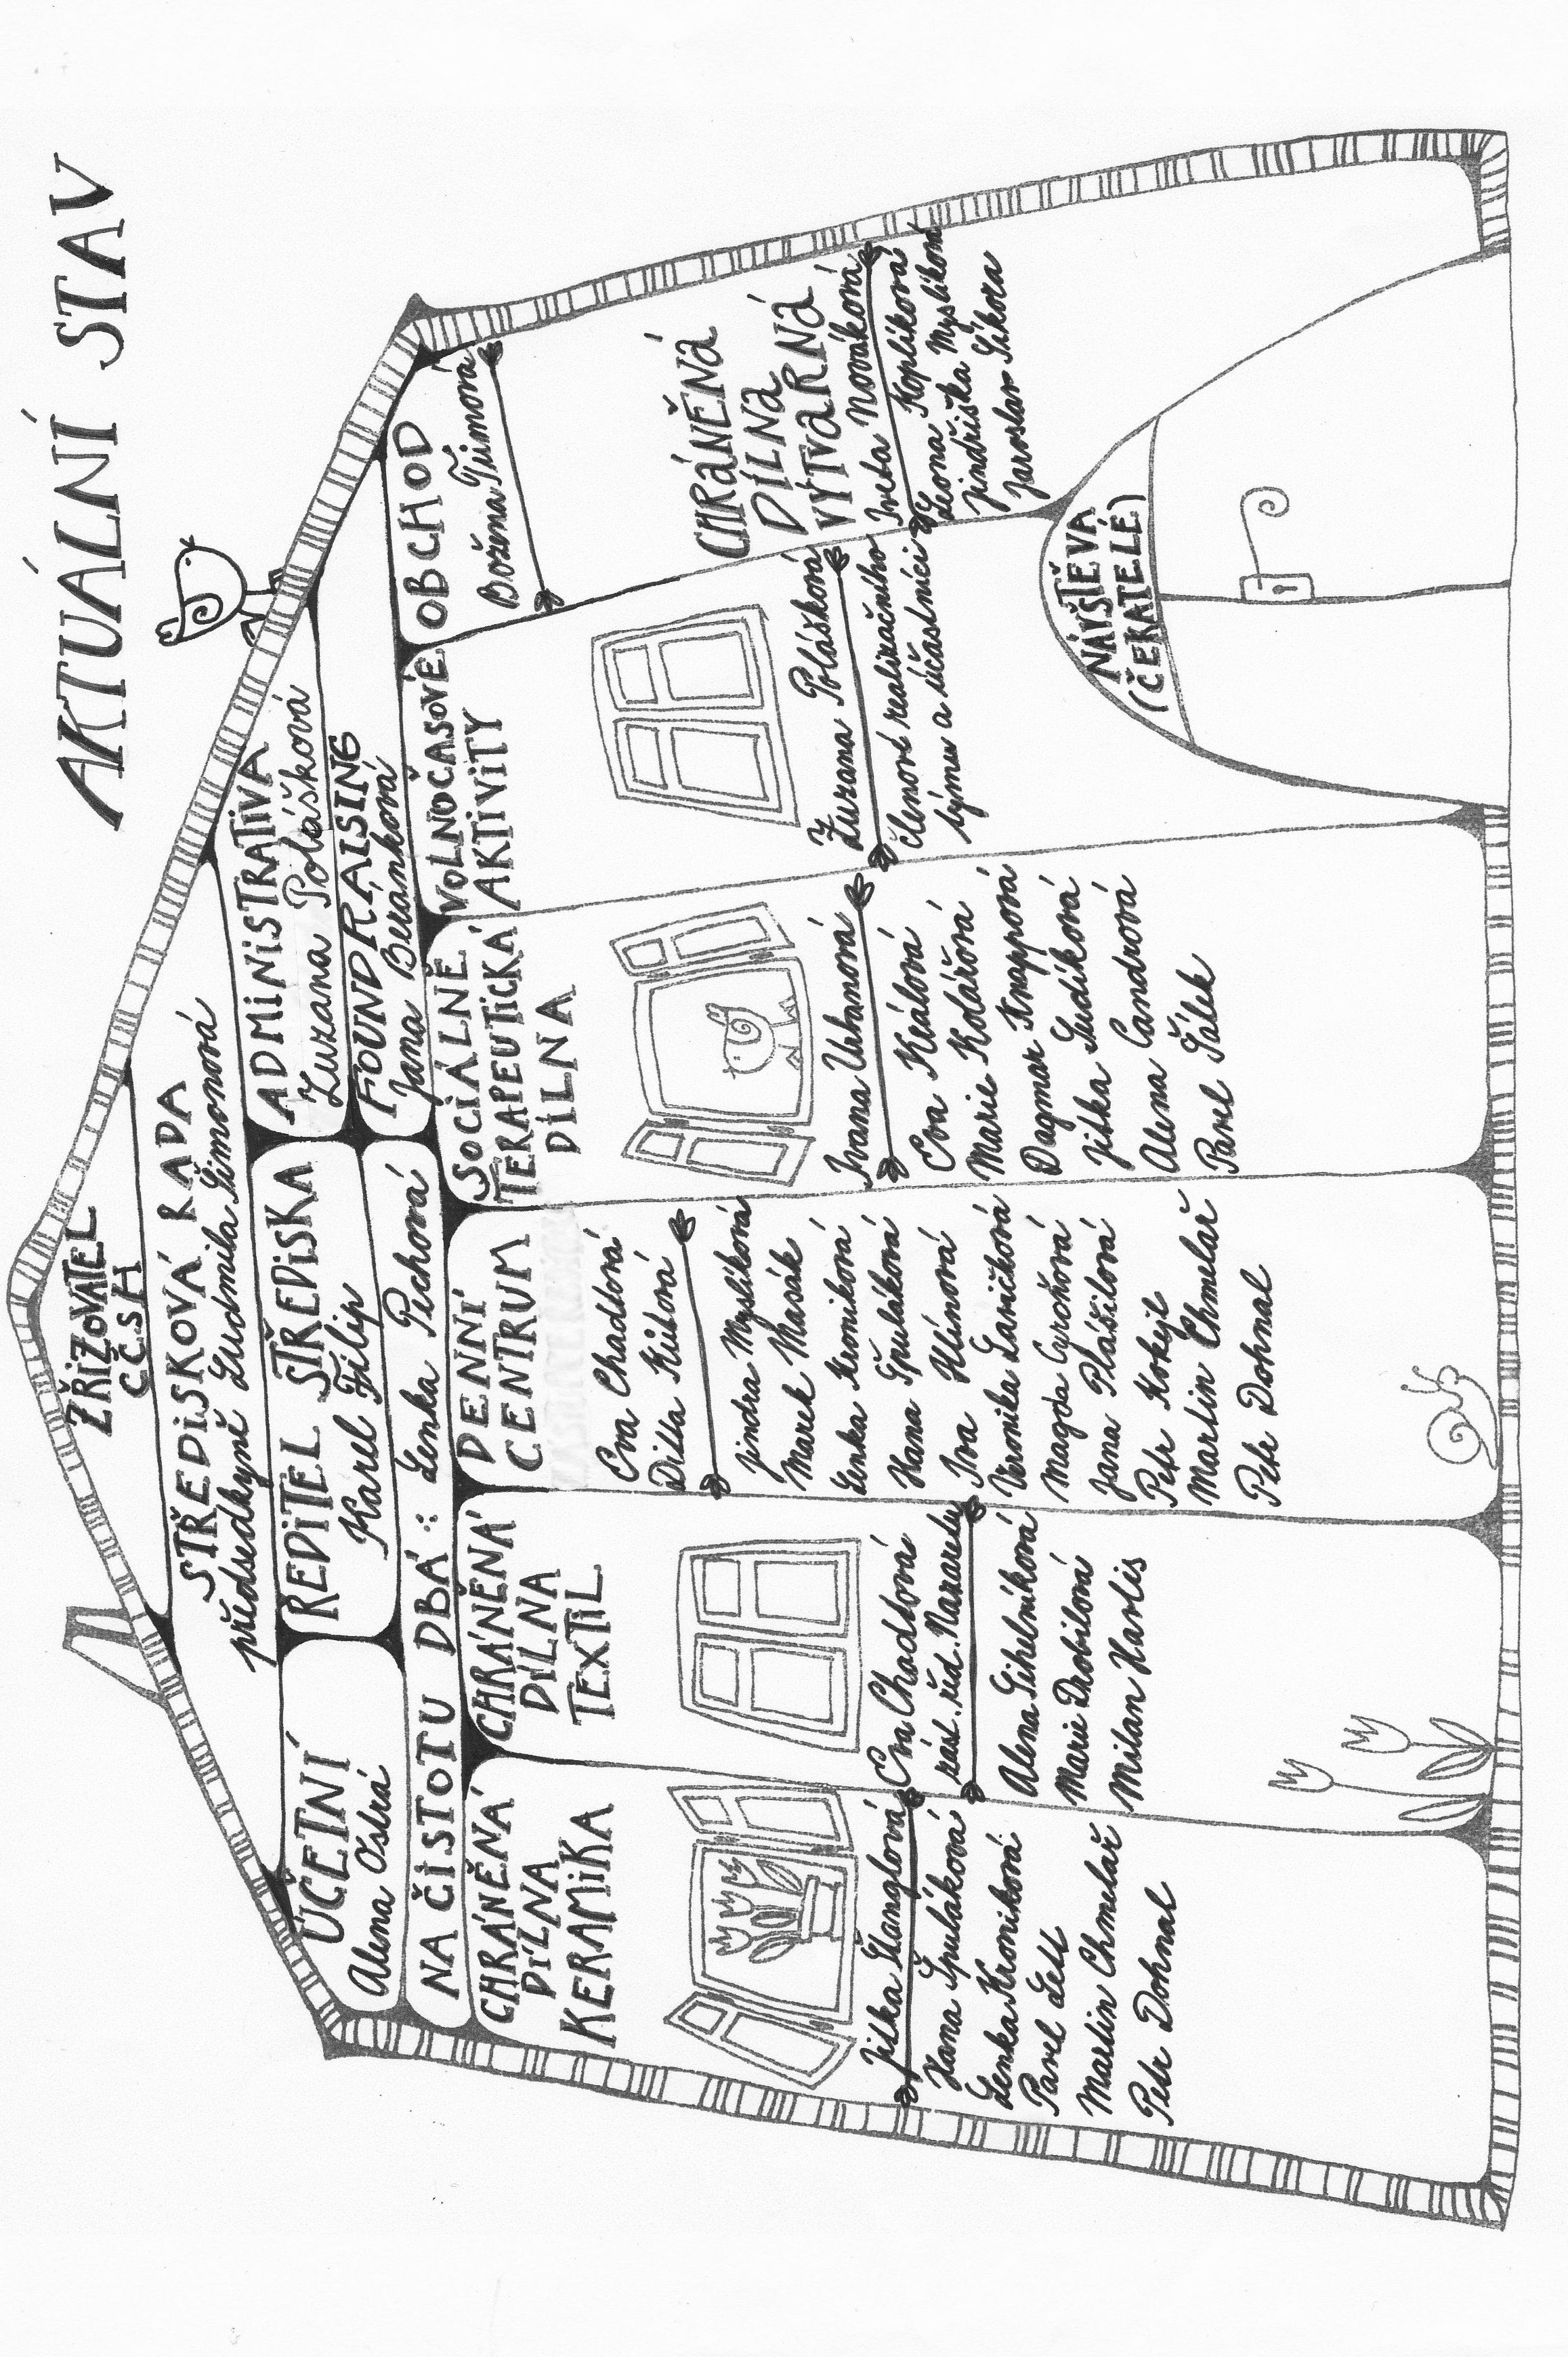 AKTUÁLNÍ STAV
ZŘIZOVATEL
CČSH
STŘEDISKOVÁ RADA
předsedkyně Ludmila Šimonová
ÚČETNÍ
Alena Ostrá
ŘEDITEL STŘEDISKA
Karel Filip
ADMINISTRATIVA
Zuzana Polášková
FOUNDRAISING
Jana Beránková
NA ČISTOTU DBÁ : Lenka Pichová
CHRÁNĚNÁ
DÍLNA
KERAMIKA
Jitka Štanglová
Hana Špuláková
Lenka Kroniková
Pavel Lell
Martin Chmelař
Petr Dohnal
CHRÁNĚNÁ
DÍLNA
TEXTIL
Eva Chadtová
zást. řed. Nazaretu
Alena Sihelníková
Marie Drobilová
Milan Harlis
DENNÍ
CENTRUM
Eva Chadtová
Dita Kubová
Jindra Myslíková
Marek Masák
Lenka Kroniková
Hana Špuláková
Iva Hlínová
Veronika Laničková
Magda Cyroňová
Jana Plášilová
Petr Kokejl
Martin Chmelař
Petr Dohnal
SOCIÁLNĚ
TERAPEUTICKÁ
DÍLNA
Ivana Urbanová
Eva Králová
Marie Kolářová
Dagmar Knappová
Jitka Sudíková
Alena Candrová
Pavel Šálek
VOLNOČASOVÉ
AKTIVITY
Zuzana Polášková
členové realizačního
týmu a účastníci
OBCHOD
Božena Tůmová
CHRÁNĚNÁ
DÍLNA
VÝTVARNÁ
Iveta Nováková
Leona Koplíková
Jindřiška Myslíková
Jaroslav Sikora
NÁVŠTĚVA
(ČEKATELÉ)